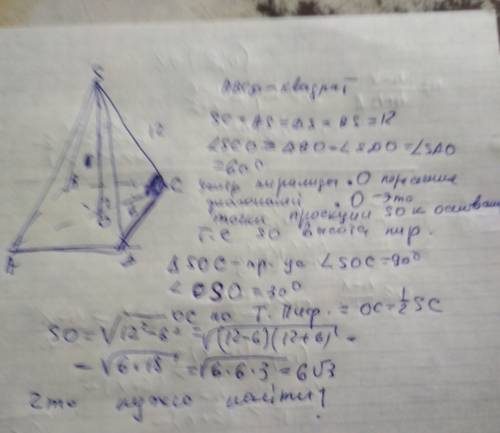 S
12
C
A
ABCD - квадрат
SC = AS = = = 12
∠SCO = = ∠ = ∠SAO
= 60°
пирамиды .O пересечение
диагоналей .O - это
точка проекции SO к основан
т.е SO высота пир.
ΔSOC - пр. уг ∠SOC = 90°
∠OSO = 30°
OC по Т. Пиф. = OC = 1/2 SC
SO = √12² - 6² = √(12-6)(12+6) =
= √6·18 = √6·6·3 = 6√3
Что нужно найти?